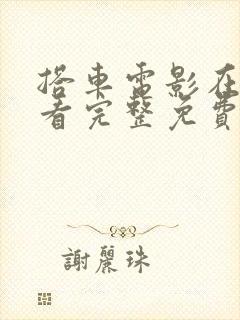 搭車電影在
看完整免費
謝麗珠